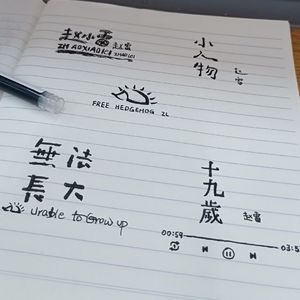 赵小雷
ZHAOXIAOLEI 赵雷
小人物
赵雷
FREE HEDGEHOG ZL
無法
長大
Unable to Grow up
十九歲
赵雷
00:59
03:5